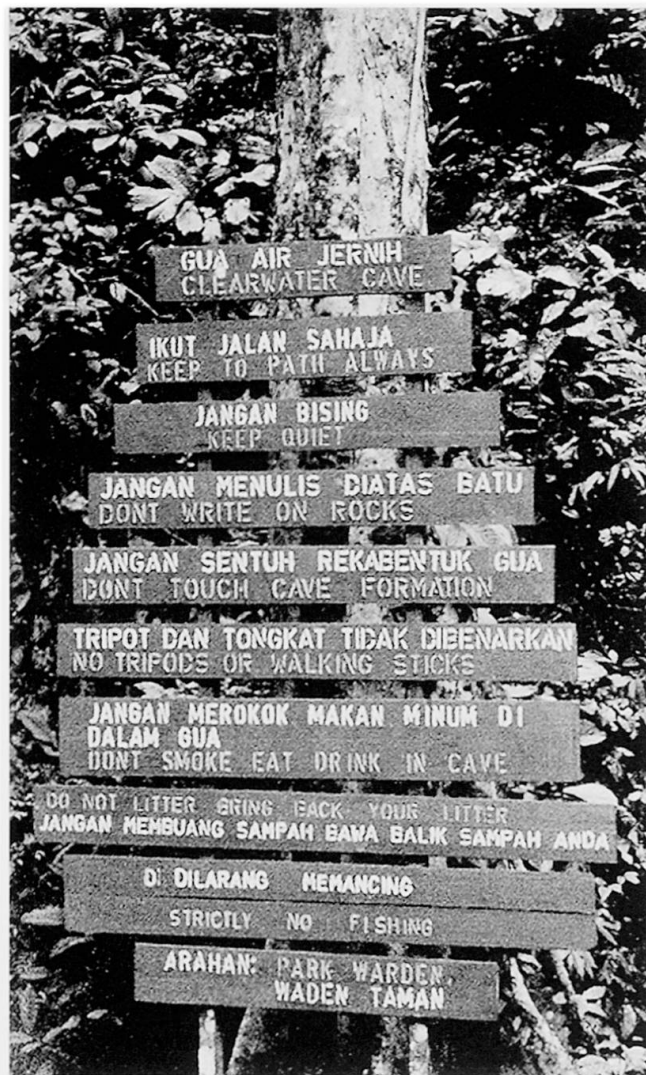 GUA AIR JERNIH
CLEARWATER CAVE
IKUT JALAN SAHAJA
KEEP TO PATH ALWAYS
JANGAN BISING
KEEP QUIET
JANGAN MENULIS DIATAS BATU
DONT WRITE ON ROCKS
JANGAN SENTUH REKABENTUK GUA
DONT TOUCH CAVE FORMATION
TRIPOT DAN TONGKAT TIDAK DIBENARKAN
NO TRIPODS OR WALKING STICKS
JANGAN MEROKOK MAKAN MINUM DI
DALAM GUA
DONT SMOKE EAT DRINK IN CAVE
DO NOT LITTER BRING BACK YOUR LITTER
JANGAN MEMBUANG SAMPAH BAWA BALIK SAMPAH ANDA
Di DILARANG MEMANCING
STRICTLY NO FISHING
ARAHAN: PARK WARDEN.
WADEN TAMAN